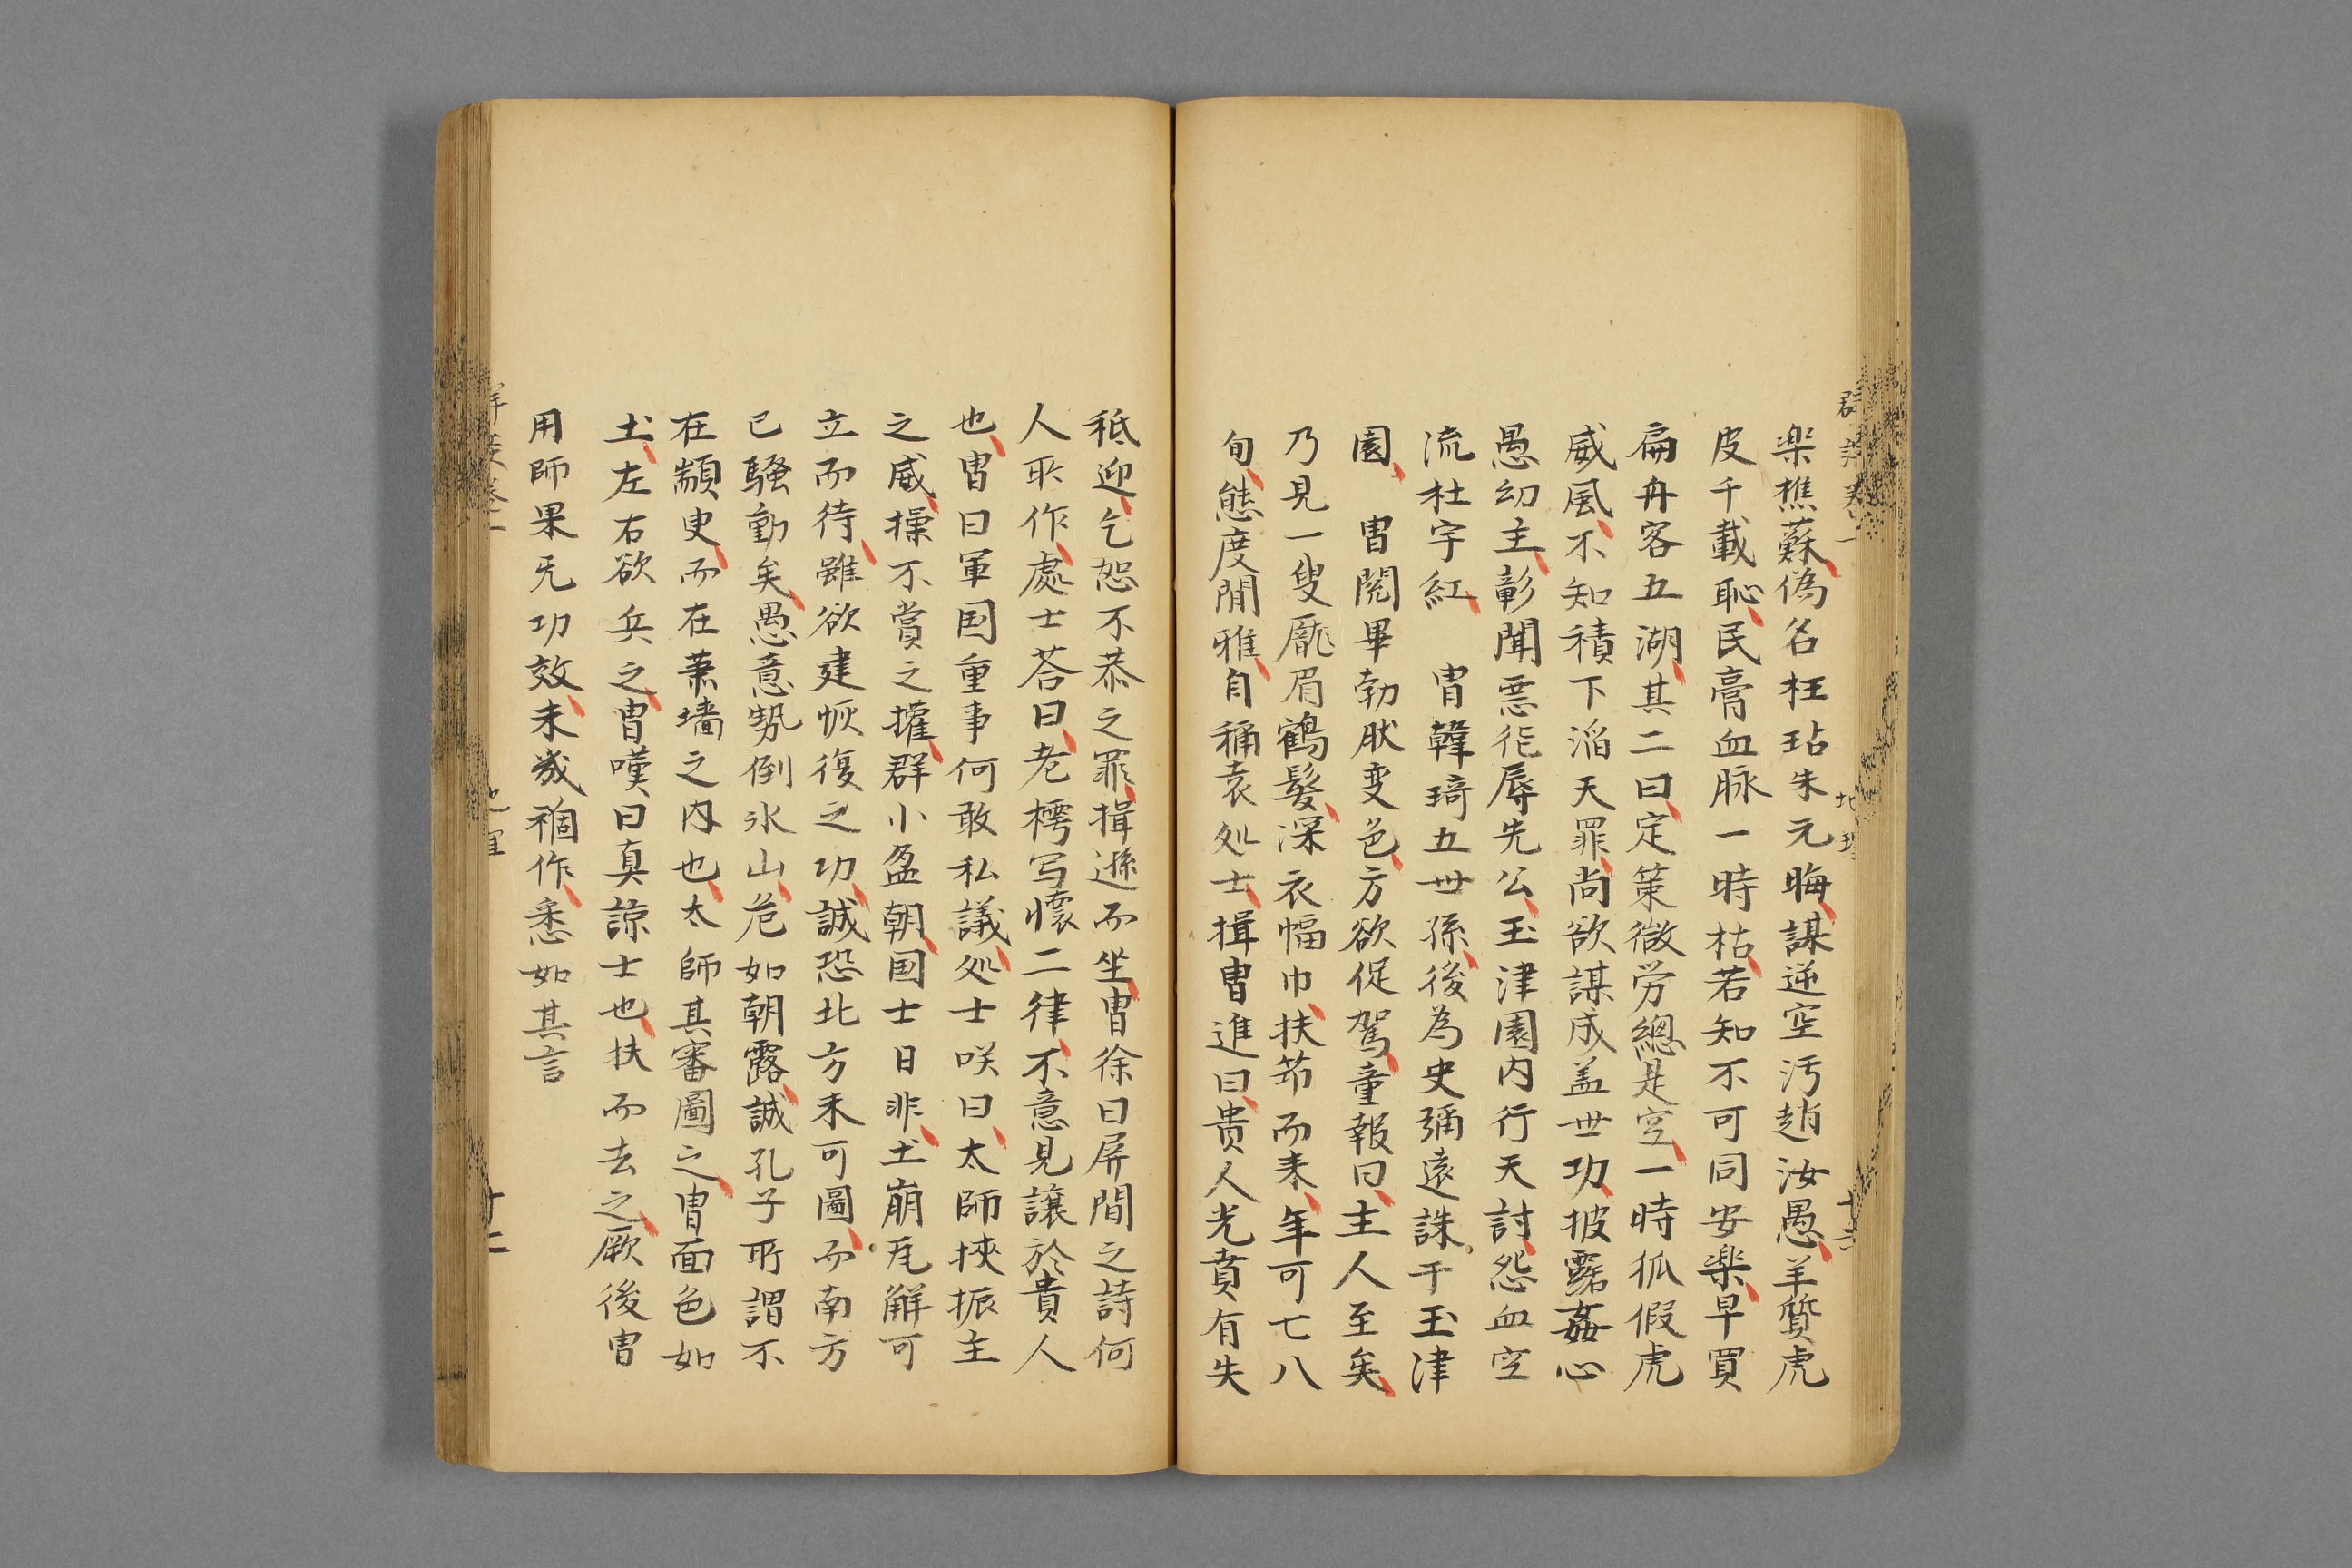 楽樵蘇偽名枉玷朱元晦謀逆空汚趙汝愚羊質虎
皮千載恥民膏血脉一時枯若知不可同安楽早買
扁舟客五湖其二曰定策微労總是空一時狐假虎
威風不知積下滔天罪尚欲謀成盖世功披露姦心
愚幼主彰聞悪徳辱先公玉津園内行天討怨血空
流杜宇紅　冑韓琦五世孫後為史彌遠誅于玉津
園　冑閲畢勃肰变色方欲促駕童報曰主人至矣
乃見一叟厖眉鶴髮深衣幅巾扶笻而来年可七八
旬態度閒雅自稱袁処士揖冑進曰贵人光賁有失
秪迎乞恕不恭之罪揖遜而坐冑徐曰屏間之詩何
人所作處士荅曰老樗写懷二律不意見譲於貴人
也冑曰軍国重事何敢私議処士咲曰太師挾振主
之威操不賞之權群小盈朝国士日非土崩瓦解可
立而待雖欲建恢復之功誠恐北方未可圖而南方
已騷動矣愚意勢倒氷山危如朝露誠孔子所謂不
在顓臾而在萧墻之内也太師其審圖之冑面色如
土左右欲兵之冑嘆曰真諒士也扶而去之厥後冑
用師果无功效未幾禍作悉如其言